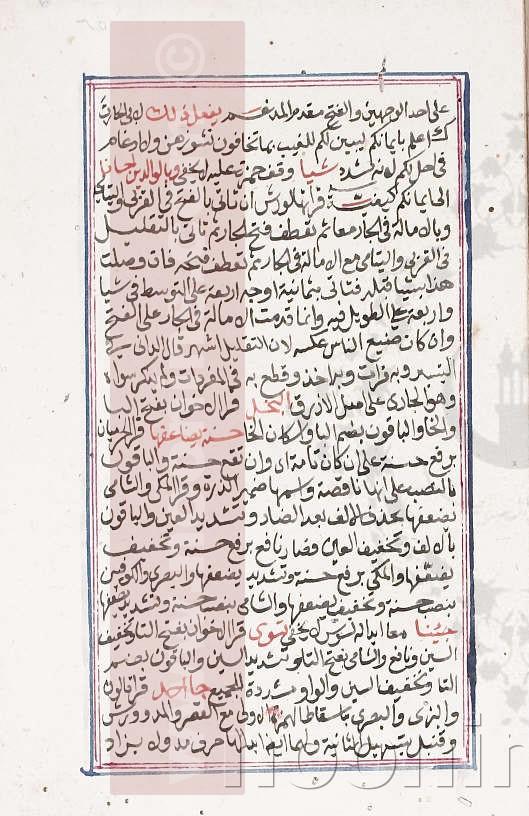 على احد الوجهين والفتح مقدم المدغم يفعل ذلك لابي الحارث
اعلم بايمانكم ليبين لكم للغيب بما تخافون نشوزهن ولا ادغام
في احل لكم لانه مشدد شيا وقف حمزة عليه لا يخفى وبالوالدين احسانا
الى ايمانكم كيفيت قرانها لورش ان تاتي بالفتح في القربى واليتامى
وبالامالة في الجار معا ثم تعطف فتح الجار ثم تاتي بالتقليل
في القربى واليتامى مع الامالة في الجار ثم تعطف فتحه فان وصلت
هذا بشيا قبله فتاتي بثمانية اوجه اربعة على التوسط في شيا
واربعة على الطويل فيه وانما قدمت الامالة في الجار على الفتح
وان كان صنيع الناس عكسه لان التقليل اشهر قال الداني في
التيسير وبه قرات وبه اخذ وقطع به في المفردات ولم يذكر سواه
وهو الجاري على ميل الازرق البخل قرا الاخوان بفتح البا
والخا والباقون بضم البا واسكان الخا حسنة يضاعفها قرا الحرميان
برفع حسنة على ان كان تامة اي وان تقع حسنة والباقون
بالنصب على انها ناقصة واسمها ضمير الذرة وقرا المكي والشامي
يضعفها بحذف الالف بعد الضاد وتشديد العين والباقون
بالالف وتخفيف العين فصار نافع برفع حسنة وتخفيف
يضعفها والمكي برفع حسنة وتشديد يضعفها والبصري والكوفيون
بنصب حسنة وتخفيف يضعفها والشامي بنصب حسنة وتشديد يضعفها
جئنا معا ابداله لسوسي لا يخفى تسوى قرا الاخوان بفتح التا وتخفيف
السين ونافع والشامي بفتح التا وتشديد السين والباقون بضم
التا وتخفيف السين والواو مشددة للجميع جا احد قرا قالون
والبزي والبصري باسقاط الهمزة الاولى مع القصر والمد وورش
وقنبل بتسهيل الثانية ولهما ايضا ابدالها حرف مد ولا يزاد